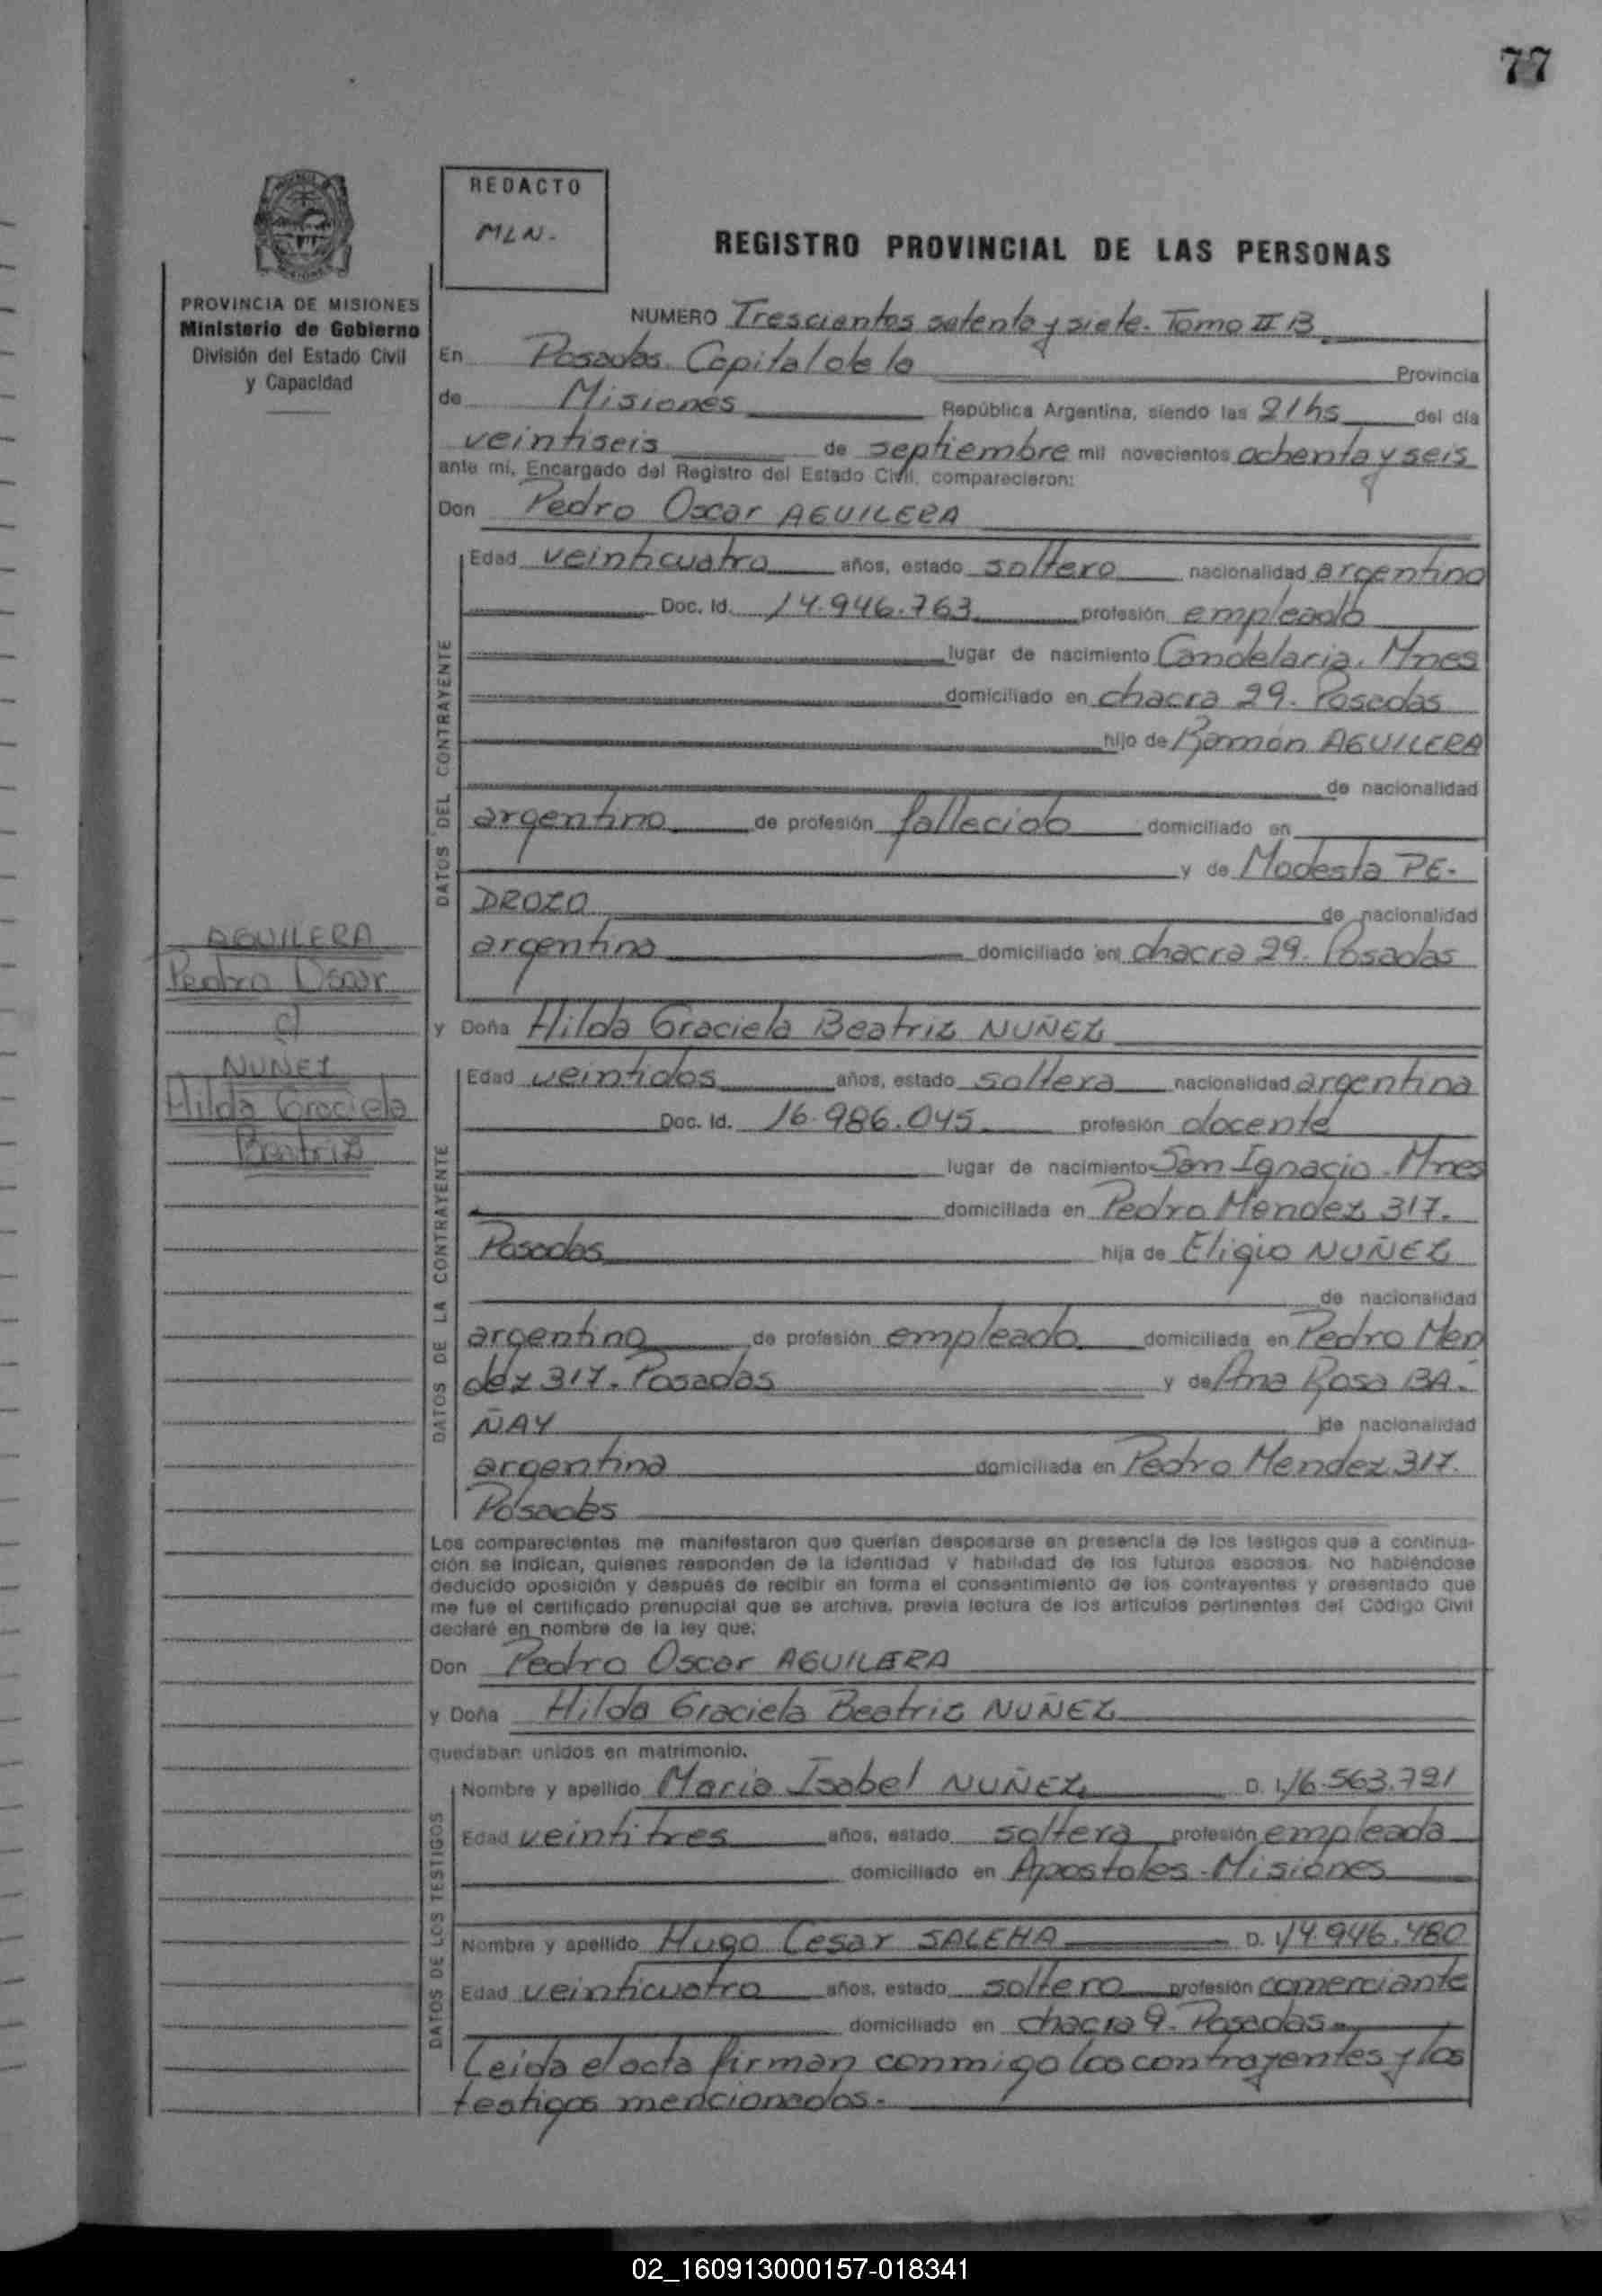 77
REDACTO
MLN.-
REGISTRO PROVINCIAL DE LAS PERSONAS
PROVINCIA DE MISIONES
Ministerio de Gobierno
División del Estado Civil
y Capacidad
NUMERO Trescientos setenta y siete. Tomo II B
En Posadas. Capital de la Provincia
de Misiones República Argentina, siendo las 21hs del día
veintiseis de septiembre mil novecientos ochenta y seis
ante mí, Encargado del Registro del Estado Civil, comparecieron:
Don Pedro Oscar AGUILERA
DATOS DEL CONTRAYENTE
Edad veinticuatro años, estado soltero nacionalidad argentino
Doc. Id. 14.946.763 profesión empleado
lugar de nacimiento Candelaria. Mnes
domiciliado en chacra 29. Posadas
hijo de Ramón AGUILERA
de nacionalidad
argentino de profesión fallecido domiciliado en
y de Modesta PE-
DROZO de nacionalidad
argentina domiciliado en chacra 29. Posadas
AGUILERA
Pedro Oscar
c/
NUÑEZ
Hilda Graciela
Beatriz
y Doña Hilda Graciela Beatriz NUÑEZ
DATOS DE LA CONTRAYENTE
Edad veintidos años, estado soltera nacionalidad argentina
Doc. Id. 16.986.045 profesión docente
lugar de nacimiento San Ignacio. Mnes
domiciliada en Pedro Mendez 317.
Posadas hija de Eligio NUÑEZ
de nacionalidad
argentino de profesión empleado domiciliada en Pedro Men
dez 317. Posadas y de Ana Rosa BA-
ÑAY de nacionalidad
argentina domiciliada en Pedro Mendez 317.
Posadas
Los comparecientes me manifestaron que querían desposarse en presencia de los testigos que a continua-
ción se indican, quienes responden de la identidad y habilidad de los futuros esposos. No habiéndose
deducido oposición y después de recibir en forma el consentimiento de los contrayentes y presentado que
me fue el certificado prenupcial que se archiva, previa lectura de los artículos pertinentes del Código Civil
declaré en nombre de la ley que:
Don Pedro Oscar AGUILERA
y Doña Hilda Graciela Beatriz NUÑEZ
quedaban unidos en matrimonio.
DATOS DE LOS TESTIGOS
Nombre y apellido Maria Isabel NUÑEZ D. I. 16.563.721
Edad veintitres años, estado soltera profesión empleada
domiciliado en Apostoles - Misiones
Nombre y apellido Hugo Cesar SALEHA D. I. 14.946.480
Edad veinticuatro años, estado soltero profesión comerciante
domiciliado en chacra 9. Posadas
Leida el acta firman conmigo los contrayentes y los
testigos mencionados.-
02_160913000157-018341